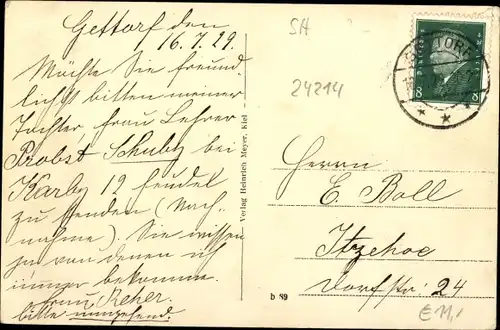 Gettorf den
16.7.29.
Möchte Sie freund-
lichst bitten meiner
Tochter, frau Lehrer
Probst Schuby bei
Karby 12 feudel
zu senden (Nach-
nahme). Sie wissen
ja von denen ich
immer bekomme.
frau Reher.
bitte umgehend.
Verlag Heinrich Meyer, Kiel
b 89
SH
24214
GETTORF
8 8
Herrn
E. Boll
Itzehoe
Dorfstr. 24
€ 11,-